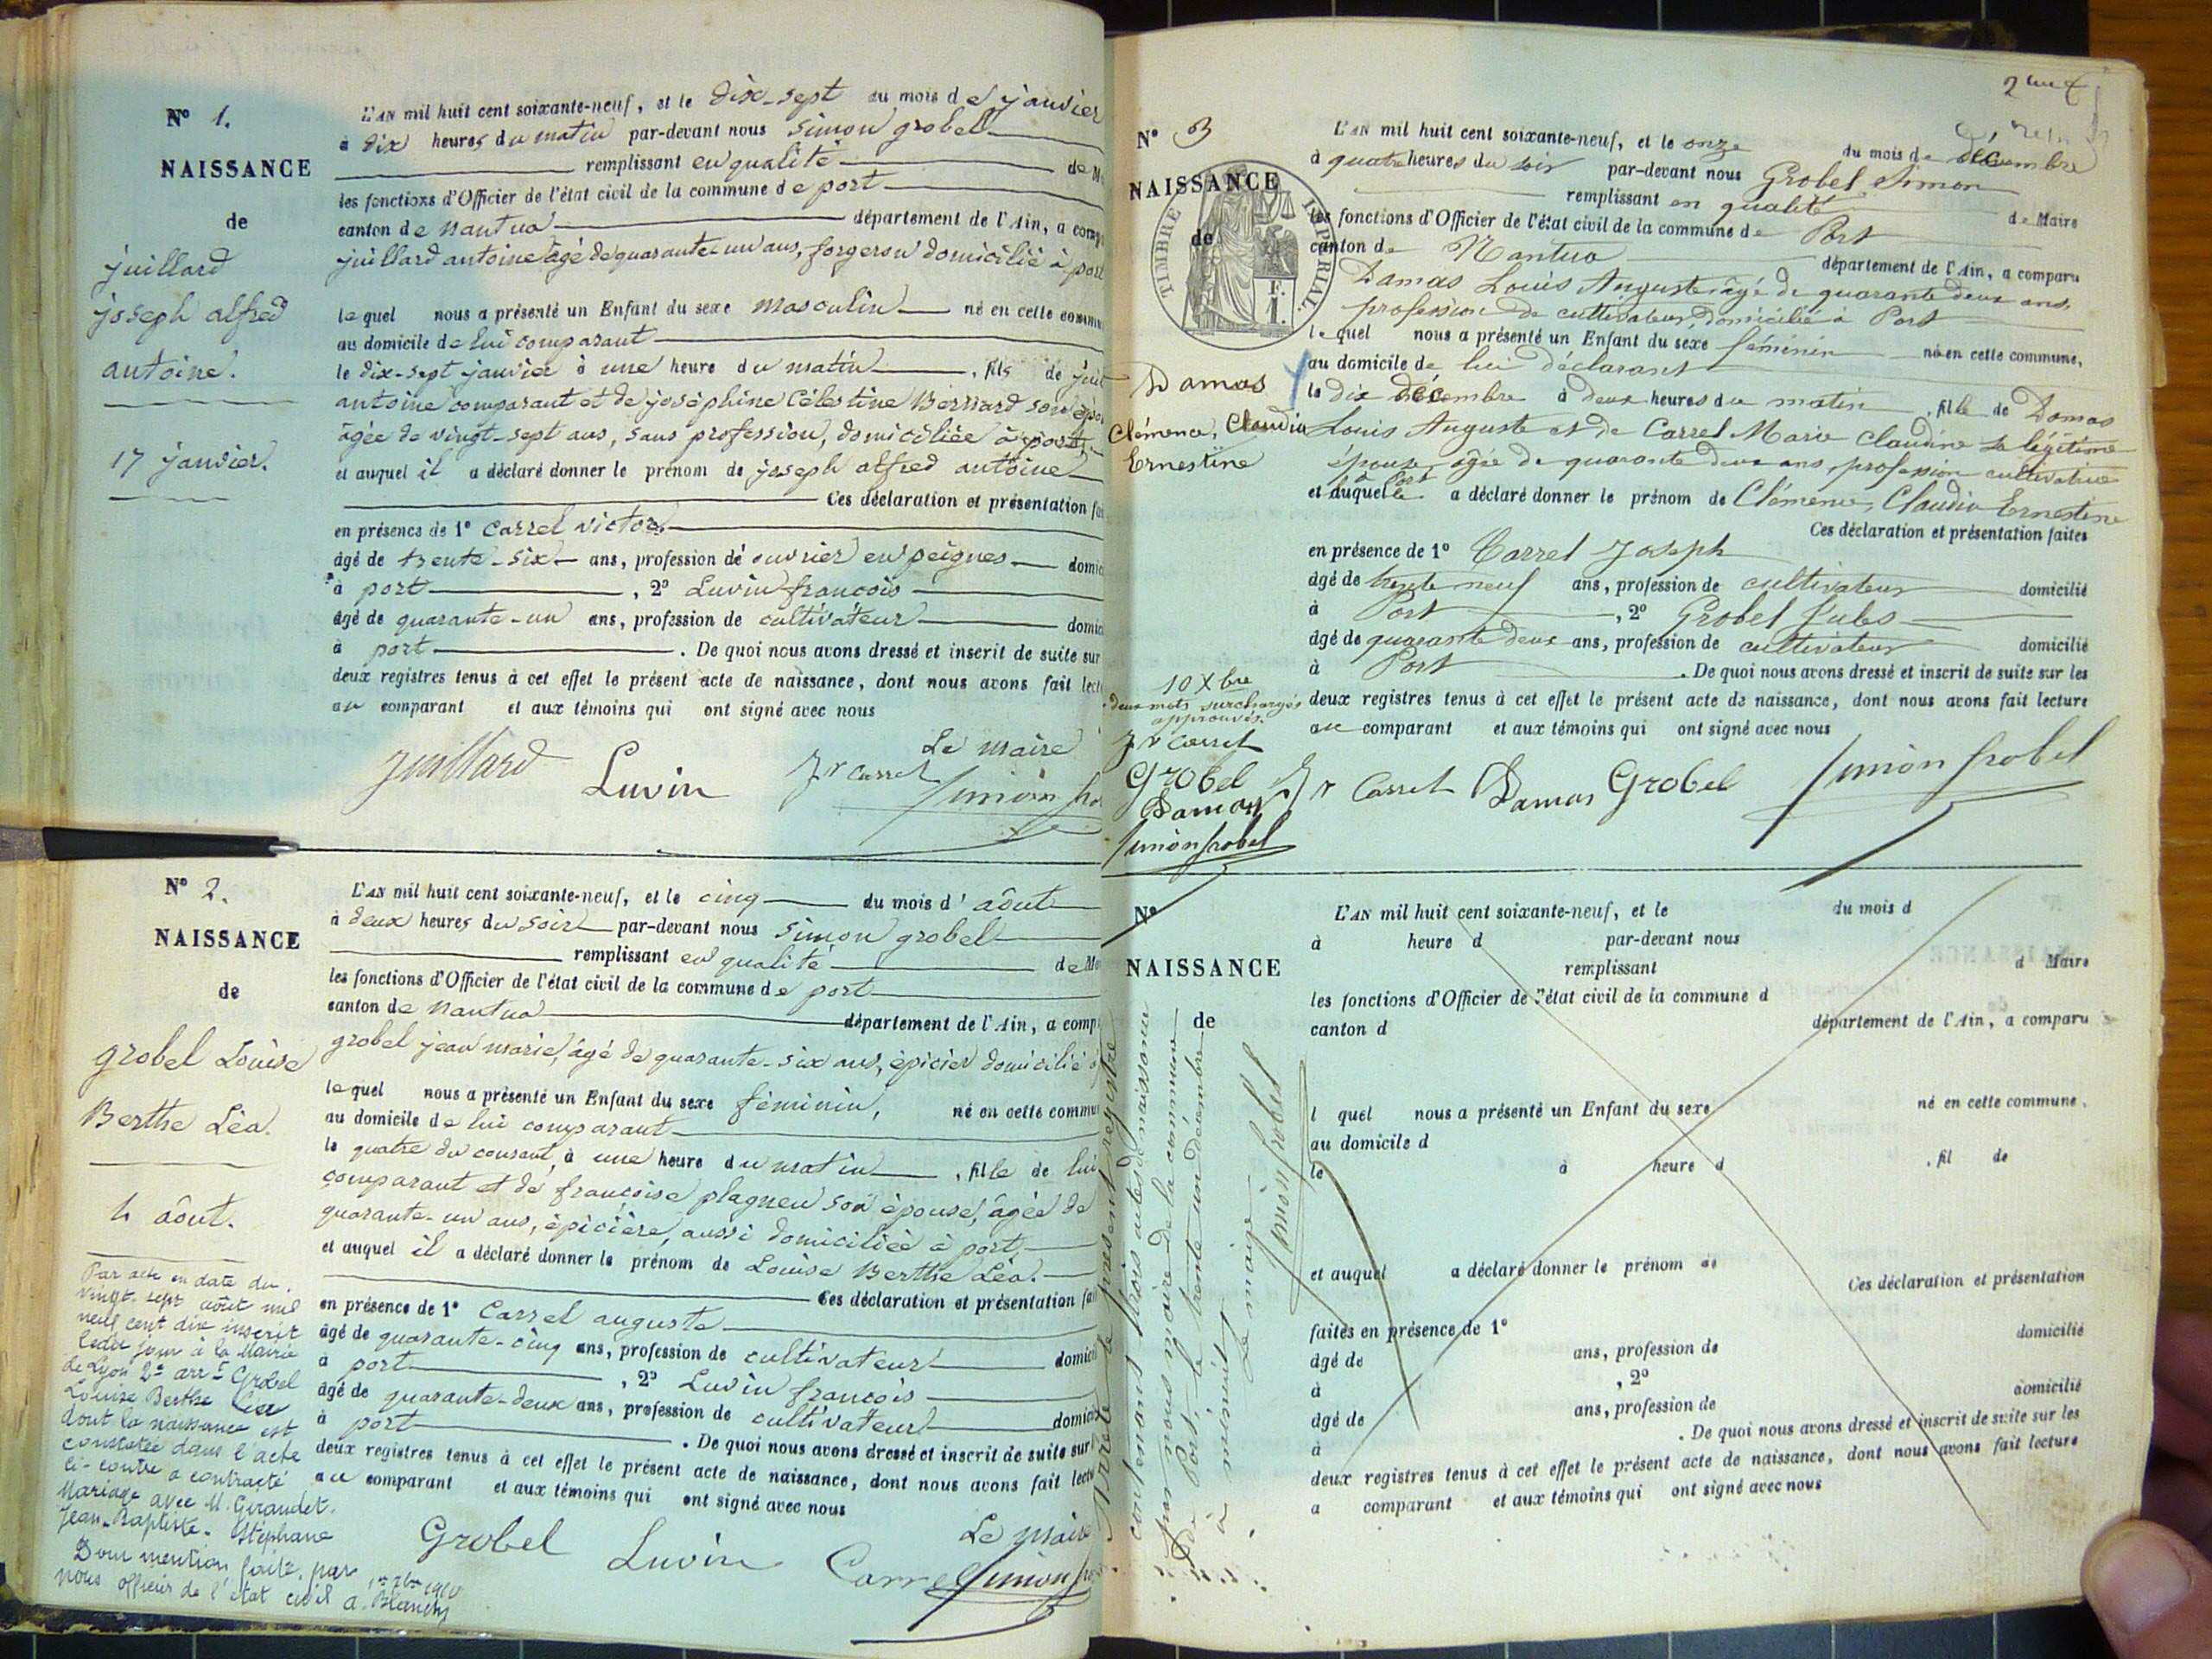 N° 1.
NAISSANCE
de
juillard
joseph alfred
antoine.
17 janvier.
L'AN mil huit cent soixante-neuf, et le dix-sept du mois de janvier
à dix heures du matin par-devant nous Simon grobel
remplissant en qualité de M
les fonctions d'Officier de l'état civil de la commune de port
canton de nantua département de l'Ain, a comp
juillard antoine âgé de quarante-un ans, forgeron domicilié à port
lequel nous a présenté un Enfant du sexe masculin né en cette commu
au domicile de lui comparant
le dix-sept janvier à une heure du matin, fils de juil
antoine comparant et de joséphine Célestine Bernard son épou
âgée de vingt-sept ans, sans profession, domiciliée à port,
et auquel il a déclaré donner le prénom de joseph alfred antoine
Ces déclaration et présentation fai
en présence de 1° Carrel victor
âgé de trente-six ans, profession de ouvrier en peignes domici
à port, 2° Luvin françois
âgé de quarante-un ans, profession de cultivateur domici
à port. De quoi nous avons dressé et inscrit de suite sur
deux registres tenus à cet effet le présent acte de naissance, dont nous avons fait lectu
au comparant et aux témoins qui ont signé avec nous
Le maire
Juillard Luvin Jr Carrel Simon
N° 2.
NAISSANCE
de
grobel Louise
Berthe Léa.
4 août.
Par acte en date du
vingt-sept août mil
neuf cent dix inscrit
ledit jour à la Mairie
de Lyon 2e arrt Grobel
Louise Berthe Léa
dont la naissance est
constatée dans l'acte
ci-contre a contracté
Mariage avec M. Geraudet
Jean-Baptiste-Stéphane
Dont mention faite par
nous officier de l'état civil
L'AN mil huit cent soixante-neuf, et le cinq du mois d'août
à deux heures du soir par-devant nous Simon grobel
remplissant en qualité de Ma
les fonctions d'Officier de l'état civil de la commune de port
canton de nantua département de l'Ain, a comp
grobel jean marie, âgé de quarante-six ans, épicier domicilié à
lequel nous a présenté un Enfant du sexe féminin, né en cette commu
au domicile de lui comparant
le quatre du courant, à une heure du matin, fille de lui
comparant et de françoise plagneu son épouse, âgée de
quarante-un ans, épicière, aussi domiciliée à port,
et auquel il a déclaré donner le prénom de Louise Berthe Léa.
Ces déclaration et présentation fai
en présence de 1° Carrel auguste
âgé de quarante-cinq ans, profession de cultivateur domicil
à port, 2° Luvin françois
âgé de quarante-deux ans, profession de cultivateur domici
à port. De quoi nous avons dressé et inscrit de suite sur
deux registres tenus à cet effet le présent acte de naissance, dont nous avons fait lectu
au comparant et aux témoins qui ont signé avec nous
Le maire
Grobel Luvin Carrel Simon
N° 3
NAISSANCE
de
TIMBRE IMPERIAL
Damas
Clémence, Claudia
Ernestine
10 Xbre
deux mots surchargés
approuvés.
Jr Carrel
Grobel
Damas
Simon Grobel
L'AN mil huit cent soixante-neuf, et le onze du mois de décembre
à quatre heures du soir par-devant nous Grobel Simon
remplissant en qualité de Maire
les fonctions d'Officier de l'état civil de la commune de Port
canton de Nantua département de l'Ain, a comparu
Damas Louis Auguste âgé de quarante deux ans,
profession de cultivateur, domicilié à Port
lequel nous a présenté un Enfant du sexe féminin né en cette commune,
au domicile de lui déclarant
le dix décembre à deux heures du matin, fille de Damas
Louis Auguste et de Carrel Marie Claudine sa légitime
épouse, âgée de quarante deux ans, profession cultivatrice
à Port
et auquel il a déclaré donner le prénom de Clémence, Claudia Ernestine
Ces déclaration et présentation faites
en présence de 1° Carrel Joseph
âgé de trente neuf ans, profession de cultivateur domicilié
à Port, 2° Grobel Jules
âgé de quarante deux ans, profession de cultivateur domicilié
à Port. De quoi nous avons dressé et inscrit de suite sur les
deux registres tenus à cet effet le présent acte de naissance, dont nous avons fait lecture
au comparant et aux témoins qui ont signé avec nous
Jr Carrel Damas Grobel Simon Grobel
N°
NAISSANCE
de
L'AN mil huit cent soixante-neuf, et le du mois d
à heure d par-devant nous
remplissant d Maire
les fonctions d'Officier de l'état civil de la commune d
canton d département de l'Ain, a comparu
l quel nous a présenté un Enfant du sexe né en cette commune,
au domicile d
le à heure d, fil de
et auquel a déclaré donner le prénom de
Ces déclaration et présentation
faites en présence de 1°
âgé de ans, profession de domicilié
à, 2°
âgé de ans, profession de domicilié
à. De quoi nous avons dressé et inscrit de suite sur les
deux registres tenus à cet effet le présent acte de naissance, dont nous avons fait lecture
a comparant et aux témoins qui ont signé avec nous
Arrêté le présent registre
contenant trois actes de naissance
par nous maire de la commune
de Port, le trente un décembre
à minuit
Le maire
Simon Grobel